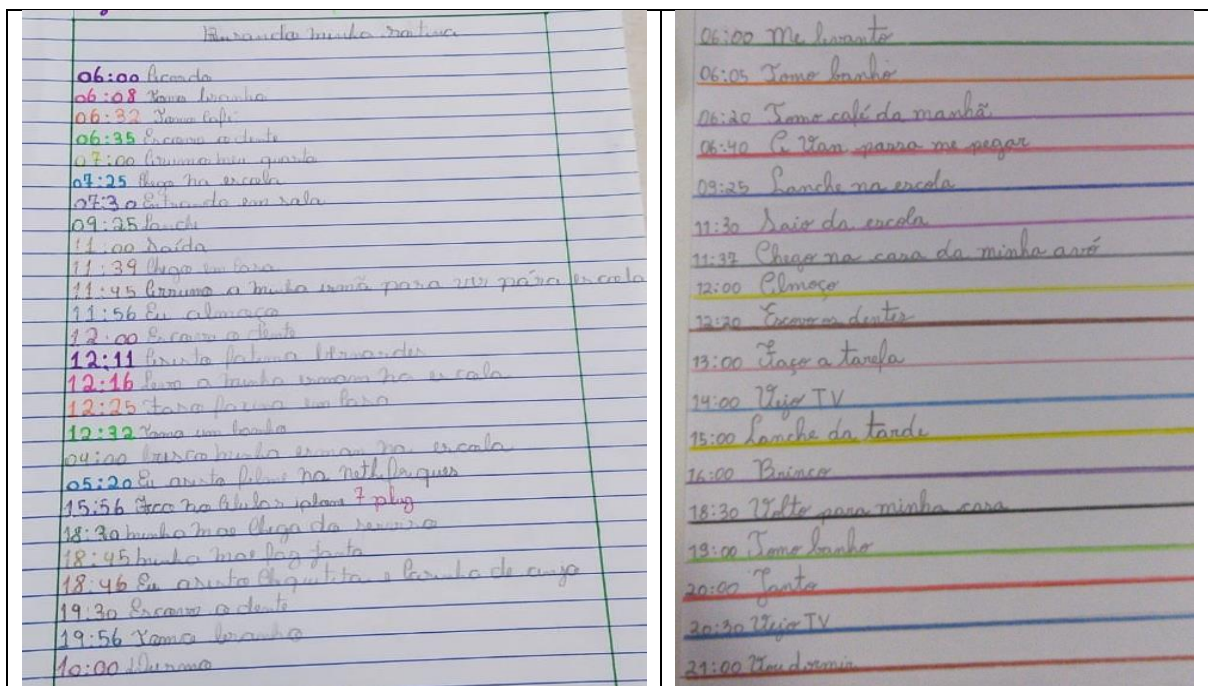 minha rotina
06:00 Acordo
06:08 Tomo branho
06:32 Tomo Cafe
06:35 Escovo o dente
07:00 Arrumo meu quarto
07:25 Chego na escola
07:30 Entrando em sala
09:25 Lanche
11:00 Saída
11:39 Chego em Casa
11:45 Arrumo a minha irmã para ir pára escola
11:56 Eu almoço
12:00 Escovo o dente
12:11 Asisto Fatima bernardes
12:16 Levo a minha irmam na escola
12:25 em Casa
12:32 Toma um banho
04:00 busco minha na escola
05:20 Eu asisto filme na
15:56 Fico no Celular 7 plug
18:30 minha mae Chega do
18:45 minha mae faz janta
18:46 Eu asisto Chiquitita e Carinha de anjo
19:30 Escovo o dente
19:56 Tomo branho
10:00 Durmo
06:00 Me levanto
06:05 Tomo banho
06:20 Tomo café da manhã
06:40 A Van passa me pegar
09:25 Lanche na escola
11:30 Saio da escola
11:37 Chego na casa da minha avó
12:00 Almoço
12:20 Escovo os dentes
13:00 Faço a tarefa
14:00 Vejo TV
15:00 Lanche da tarde
16:00 Brinco
18:30 Volto para minha casa
19:00 Tomo banho
20:00 Janto
20:30 Vejo TV
21:00 Vou dormir